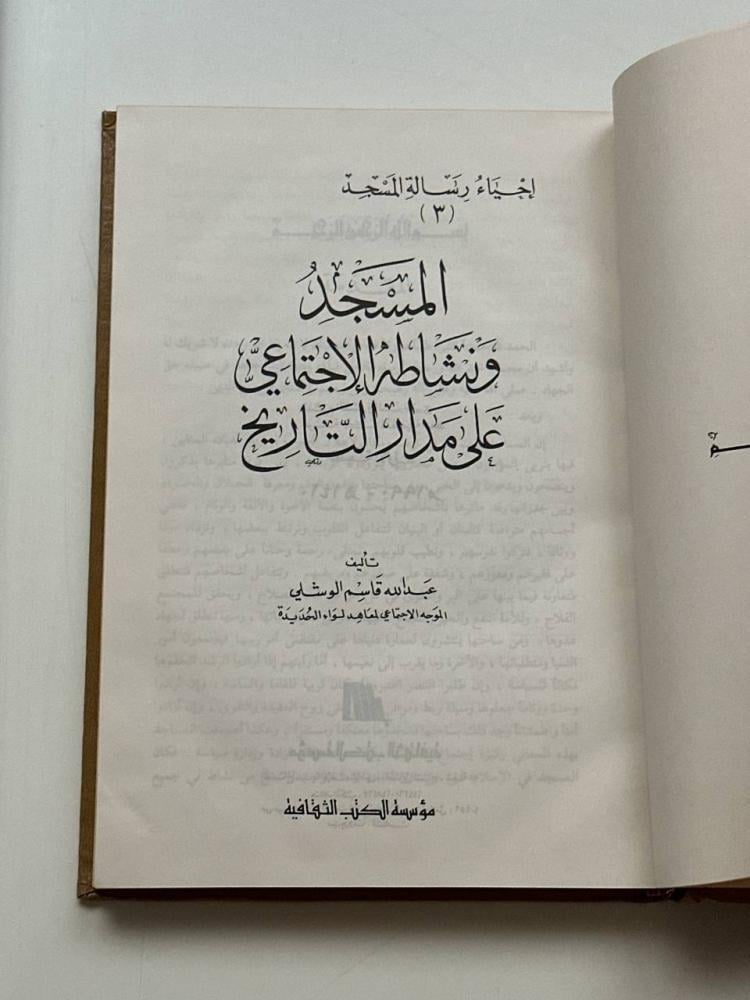 إحياءُ رسَالة المَسْجِد
(٣)
المَسْجَدُ
وَنَشَاطُه الإجْتِمَاعِيّ
عَلى مَدَارِ التَّارِيخ
تأليف
عَبدالله قَاسِم الوشلي
الموَجه الاجتماعي لمعاهد لواء الحُديَدة
مؤسسة الكتب الثقافية